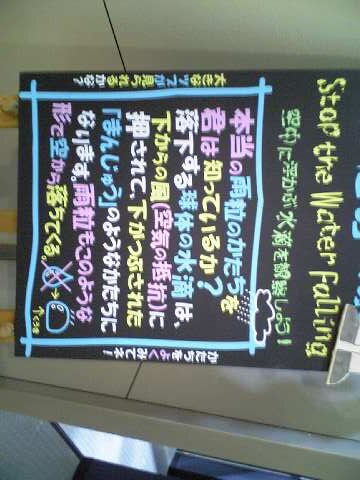 Stop the Water Falling
空中に浮かぶ水滴を観察しよう!
本当の雨粒のかたちを
君は知っているか?
落下する球体の水滴は、
下からの風(空気の抵抗)に
押されて下がつぶされた
「まんじゅう」のようなかたちに
なります。雨粒もこのような
形で空から落ちてくる。
かたちをよくみてネ!
大きなツブが見られるかな?